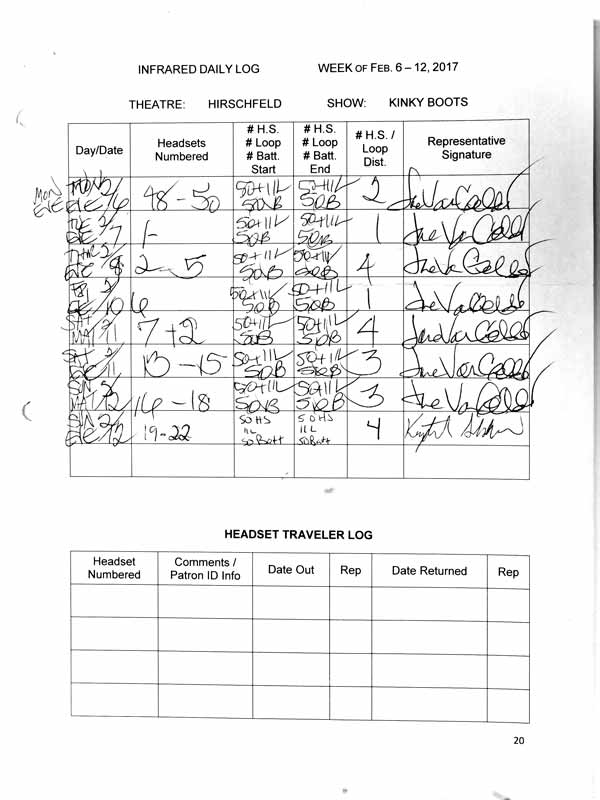 INFRARED DAILY LOG WEEK OF FEB. 6 – 12, 2017
THEATRE: HIRSCHFELD SHOW: KINKY BOOTS
Day/Date Headsets Numbered # H.S. # Loop # Batt. Start # H.S. # Loop # Batt. End # H.S. / Loop Dist. Representative Signature
MON EVE 2/6 48-50 50+11L 50B 50+11L 50B 2
EVE 2/7 1- 50+11L 50B 50+11L 50B 1
EVE 2/8 2-5 50+11L 50B 50+11L 50B 4
EVE 10 6 50+11L 50B 50+11L 50B 1
MAT 11 7+2 50+11L 50B 50+11L 50B 4
13-15 50+11L 50B 50+11L 50B 3
MAT 12 16-18 50+11L 50B 50+11L 50B 3
SUN EVE 2/12 19-22 50 HS 11L 50 Batt 50 HS 11L 50 Batt 4
HEADSET TRAVELER LOG
Headset Numbered Comments / Patron ID Info Date Out Rep Date Returned Rep
20